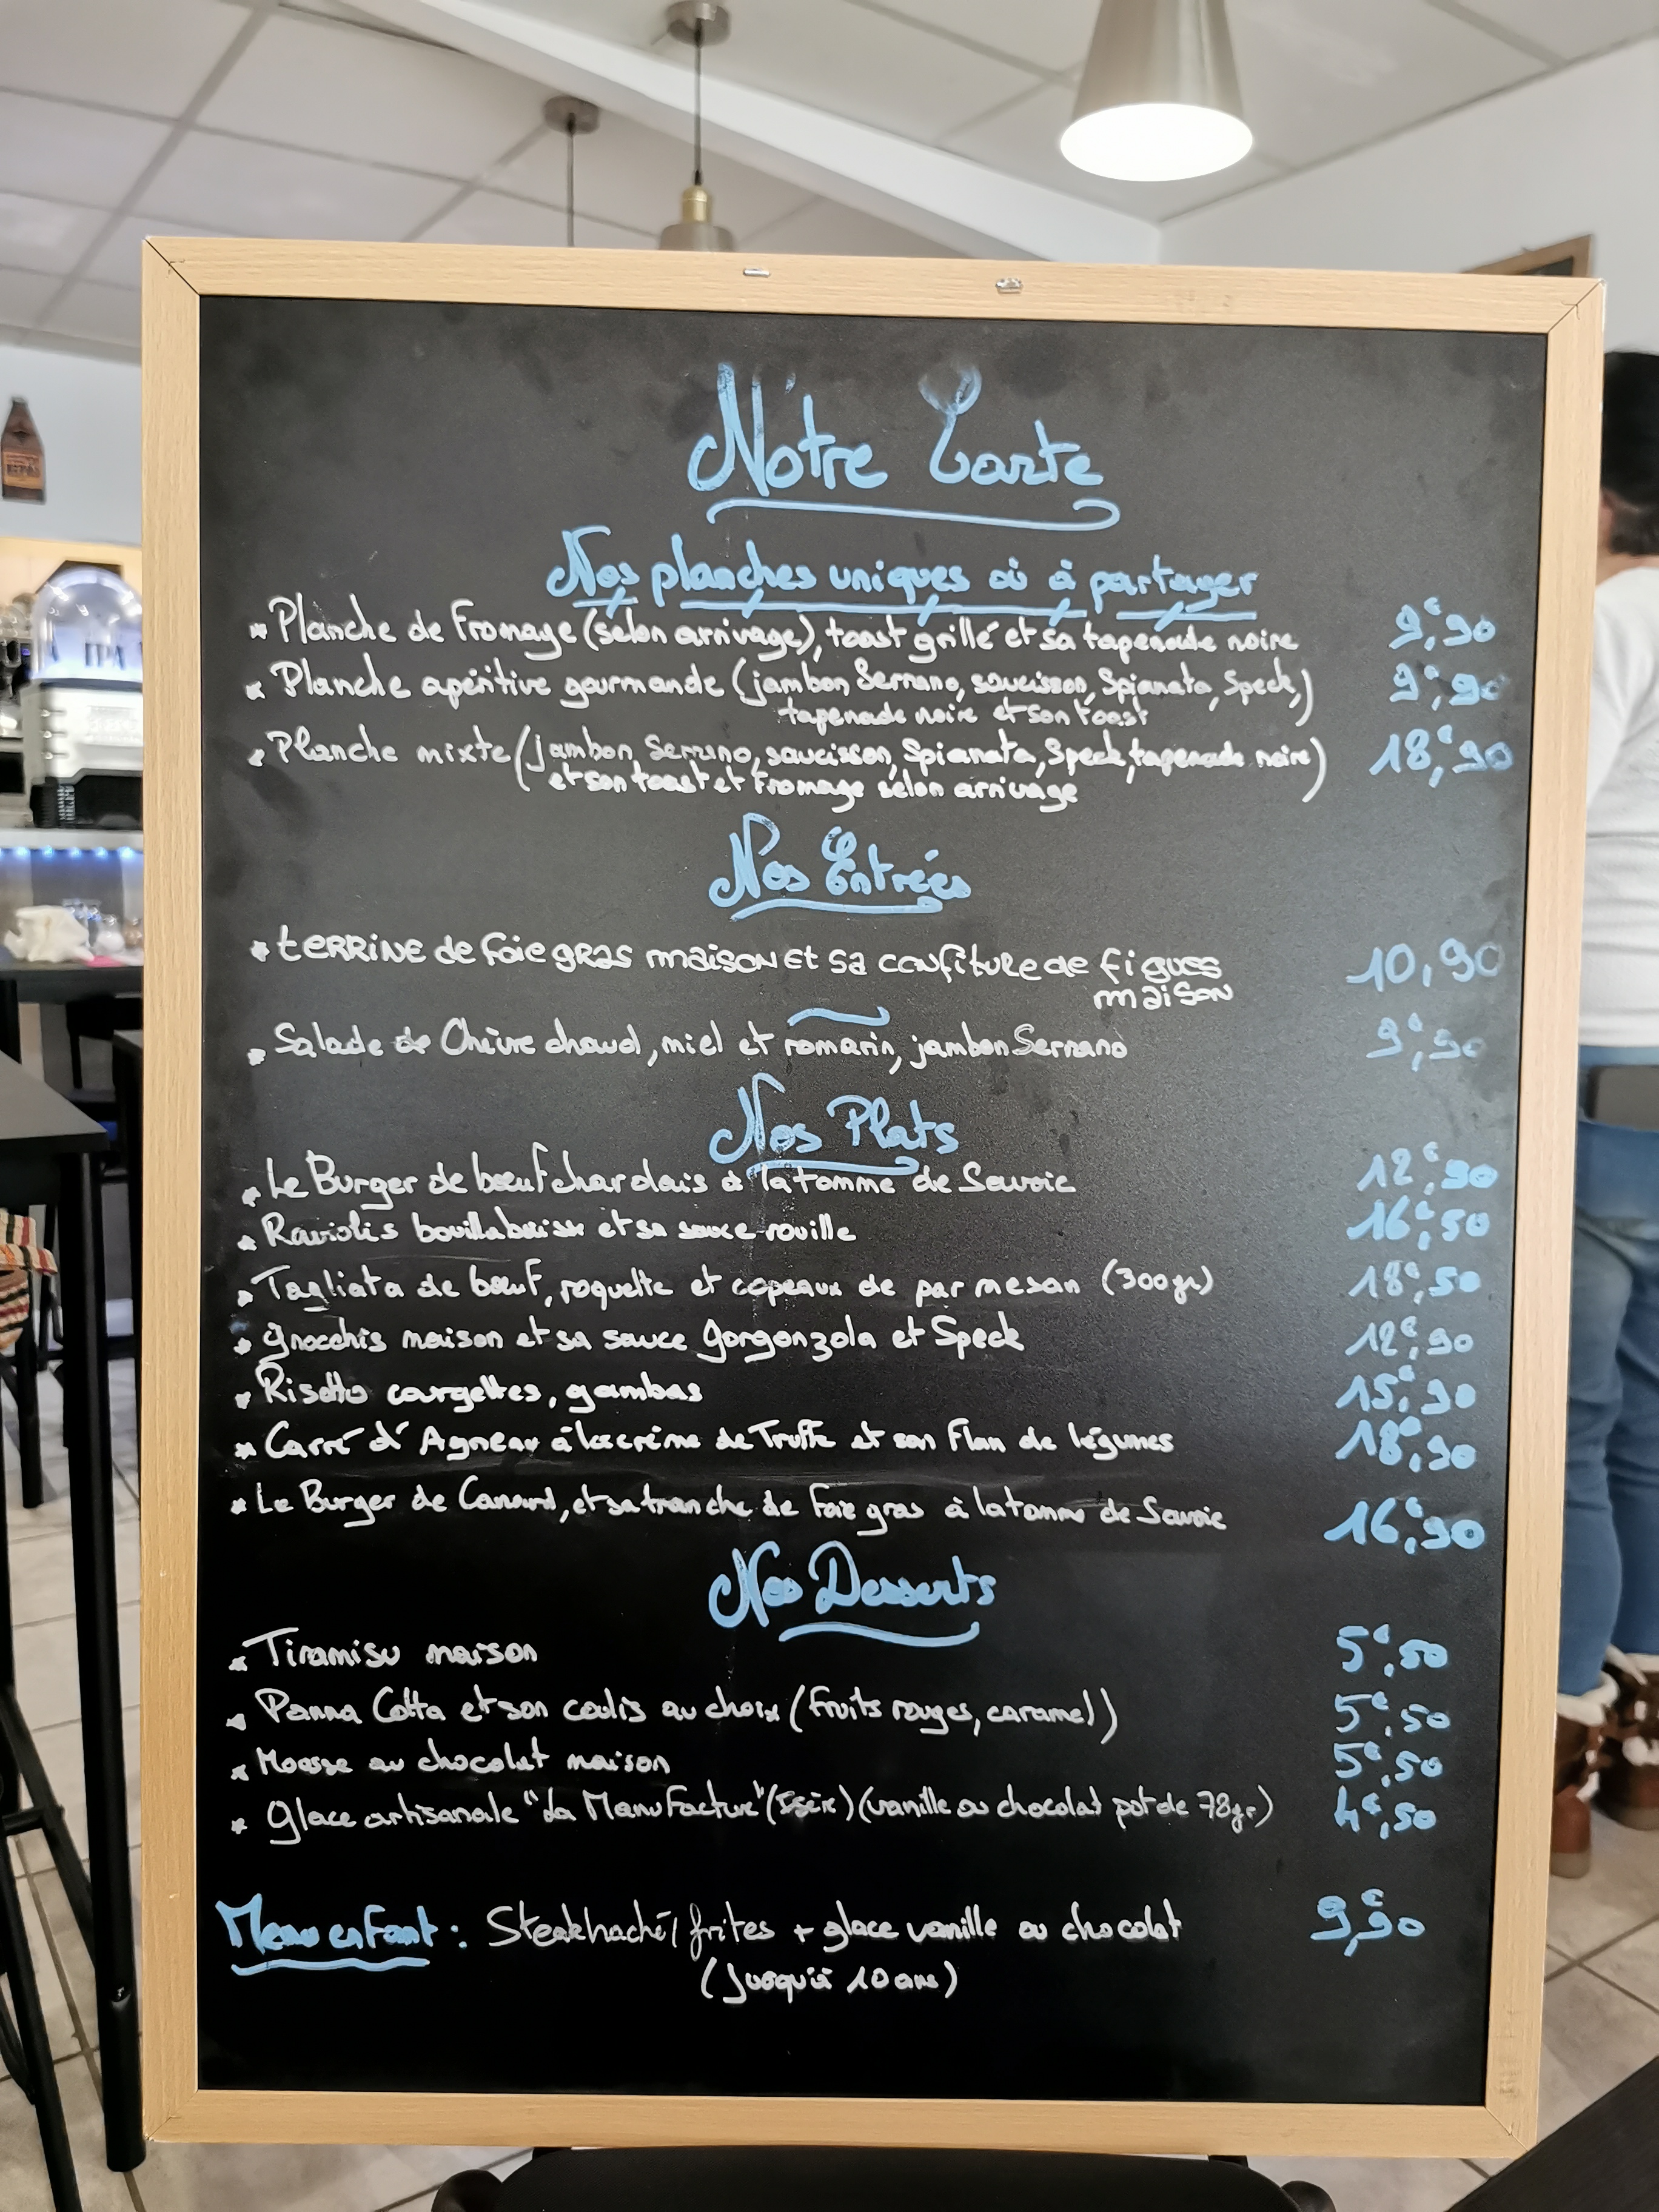 Notre Carte
Nos planches uniques où à partager
* Planche de Fromage (selon arrivage), toast grillé et sa tapenade noire 9€,90
* Planche apéritive gourmande (jambon Serrano, saucisson, Spianata, Speck, 9€,90
tapenade noire et son toast)
* Planche mixte (jambon Serrano, saucisson, Spianata, Speck, tapenade noire) 18€,90
et son toast et Fromage selon arrivage
Nos Entrées
* terrine de foie gras maison et sa confiture de figues 10,90
maison
* Salade de Chèvre chaud, miel et romarin, jambon Serrano 9€,90
Nos Plats
* Le Burger de bœuf charolais à la tomme de Savoie 12€,90
* Raviolis bouillabaisse et sa sauce rouille 16€,50
* Tagliata de bœuf, roquette et copeaux de parmesan (300gr) 18€,50
* Gnocchis maison et sa sauce Gorgonzola et Speck 12€,90
* Risotto courgettes, gambas 15€,90
* Carré d'Agneau à la crème de Truffe et son Flan de légumes 18€,90
* Le Burger de Canard, et sa tranche de Foie gras à la tomme de Savoie 16€,90
Nos Desserts
* Tiramisu maison 5€,50
* Panna Cotta et son coulis au choix (Fruits rouges, caramel) 5€,50
* Mousse au chocolat maison 5€,50
* Glace artisanale "La Manufacture" (vanille ou chocolat pot de 78gr) 4€,50
Menu enfant : Steak haché/frites + glace vanille ou chocolat 9€,90
(Jusqu'à 10 ans)
IPA